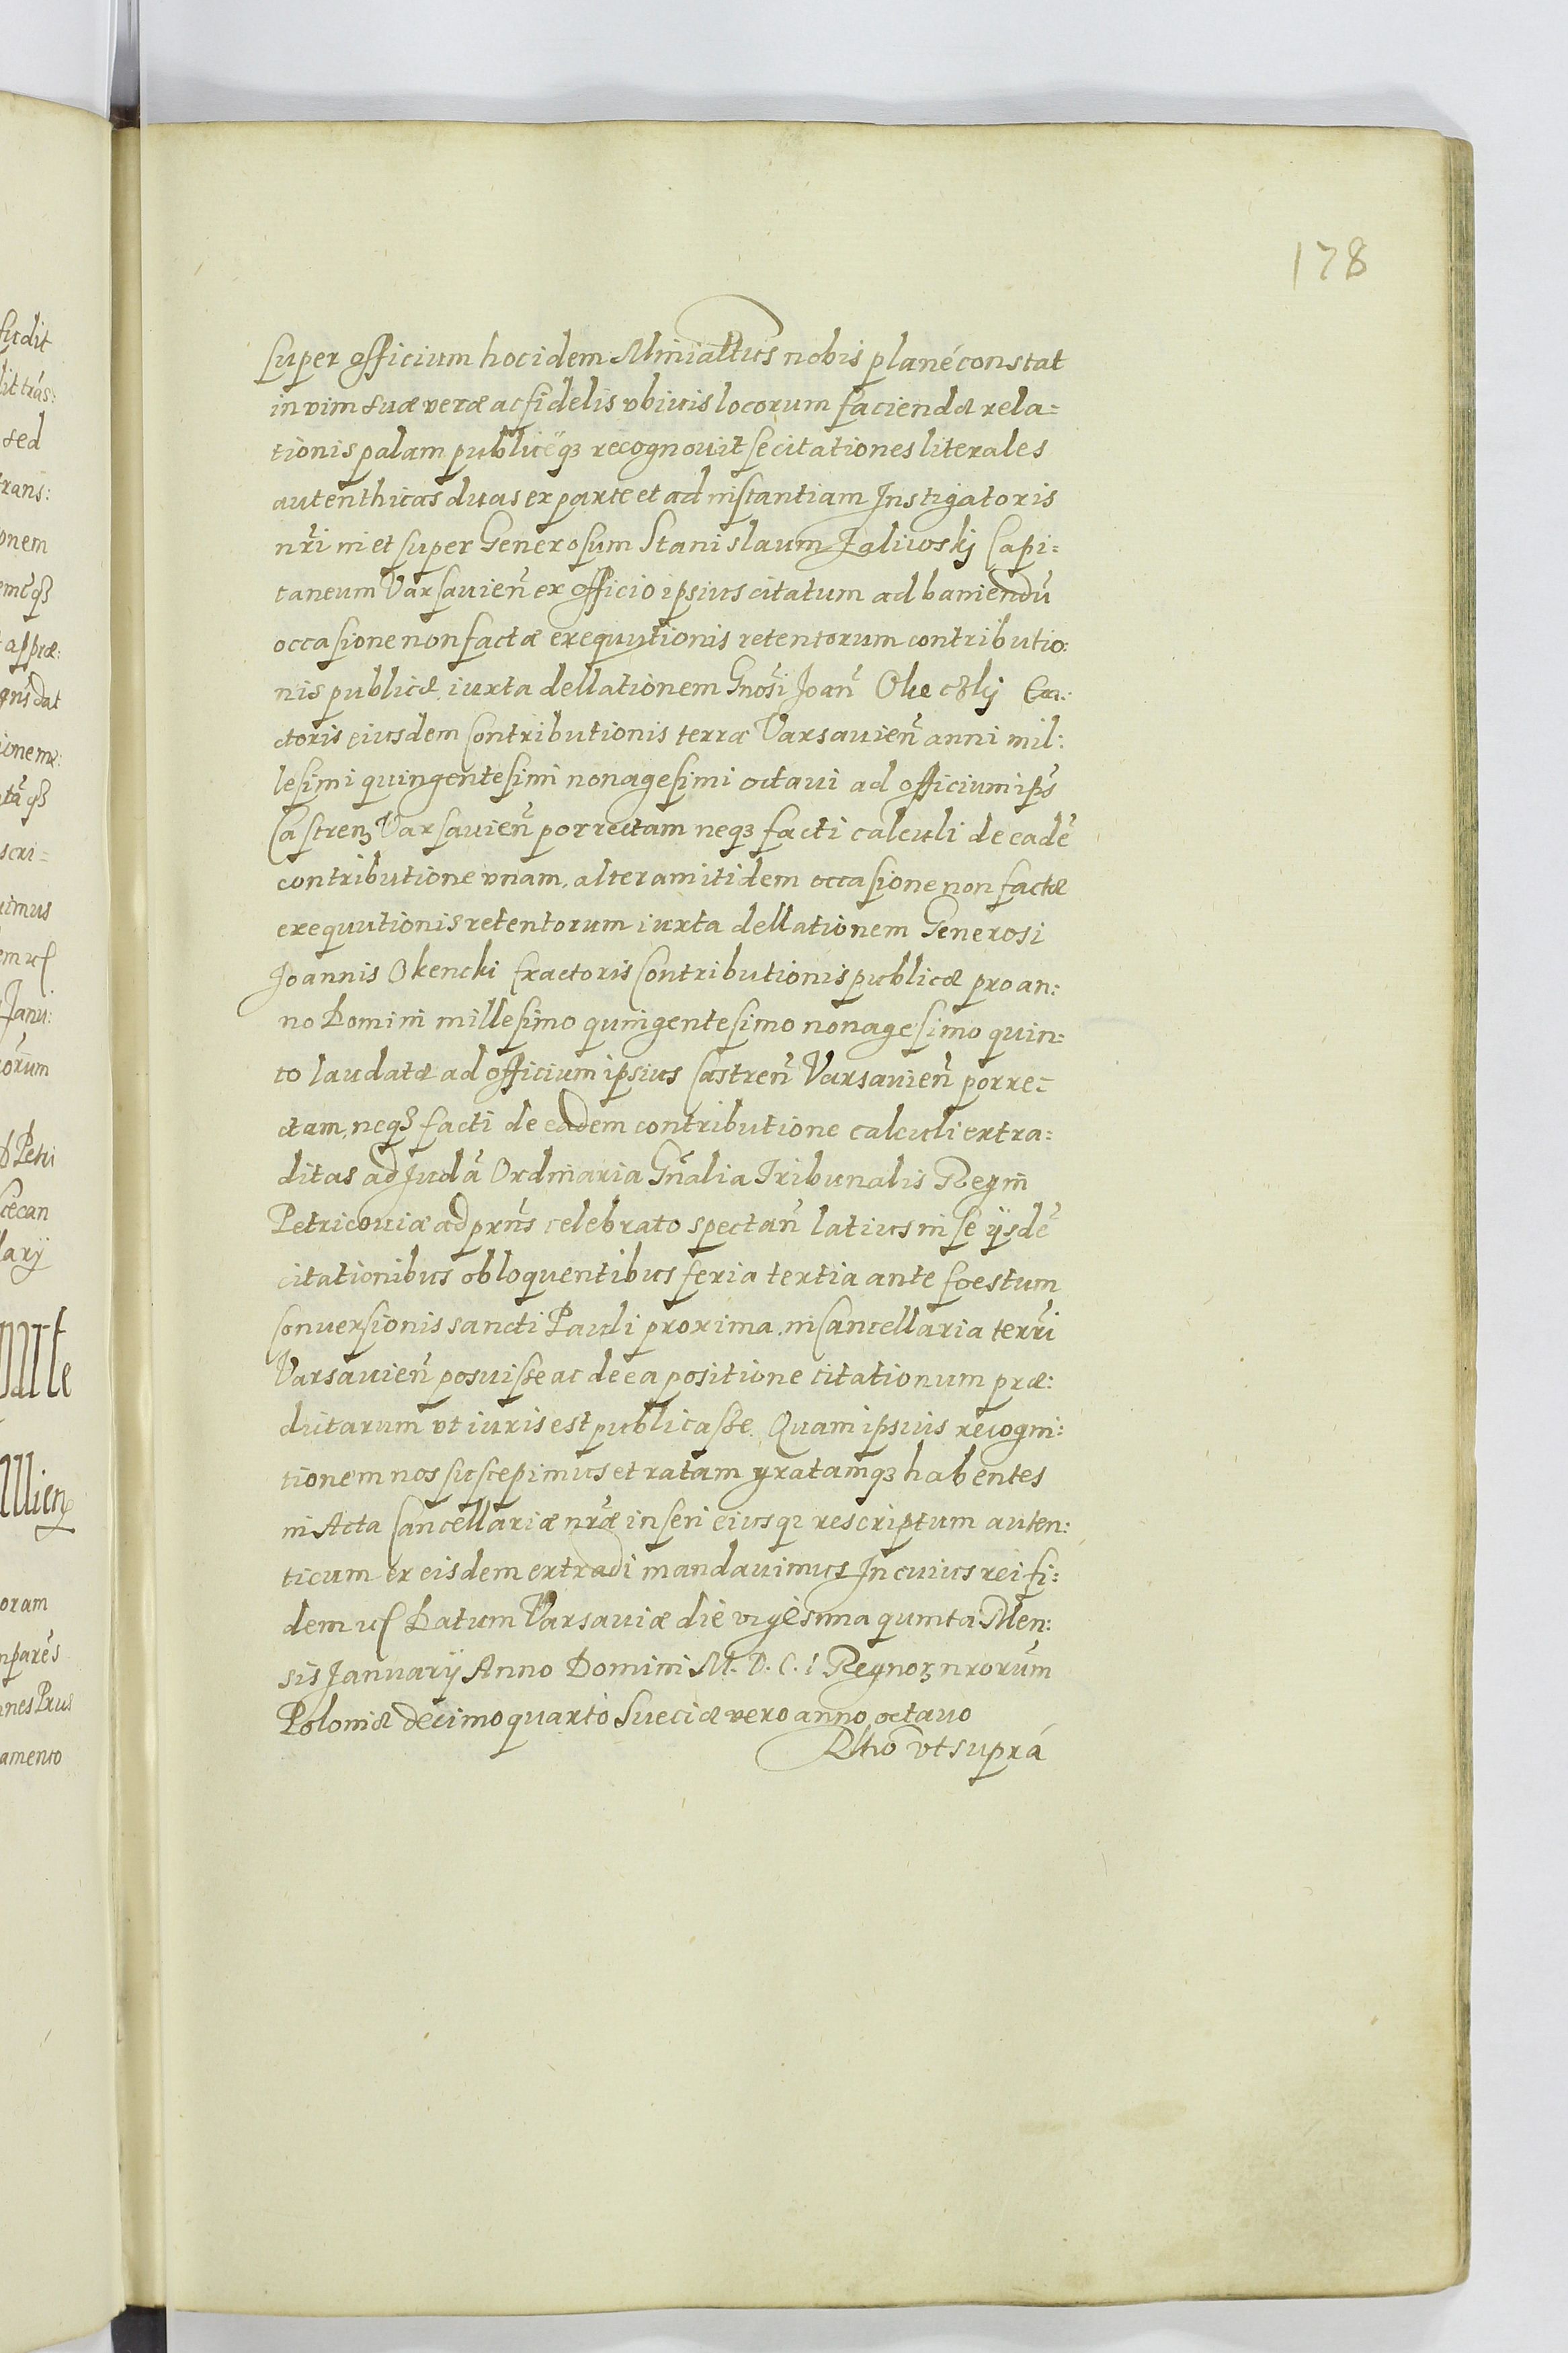 178
super officium hoc idem Ministerialis nobis planè constat
in vim suæ veræ ac fidelis vbiuis locorum faciendæ rela=
tionis palam publiceq3 recognouit se citationes literales
autenthicas duas ex parte et ad instantiam Instigatoris
nr̃i in et super Generosum Stanislaum Zaliwoskj Capi=
taneum Varsauien̄ ex officio ipsius citatum ad baniendū
occasione non factæ exequutionis retentorum contributio:
nis publicæ iuxta dellationem Gnosi Joan̄ Okęczkj Exa:
ctoris eiusdem Contributionis terræ Varsauien̄ anni mil:
lesimi quingentesimi nonagesimi octaui ad officium ips̄
Castren3 Varsauien̄ porrectam neq3 facti calculi de eadē
contributione vnam, alteram itidem occasione non factæ
exequutionis retentorum iuxta dellationem Generosi
Joannis Okencki Exactoris Contributionis publicæ pro an:
no Domini millesimo quingentesimo nonagesimo quin:
to laudatæ ad officium ipsius Castren̄ Varsauien̄ porre=
ctam, neq3 facti de eadem contributione calculi extra=
ditas ad Judā Ordinaria Gñalia Tribunalis Regni
Petricouiæ ad prn̄s celebrato spectan̄ latius in se ijsdē
citationibus obloquentibus feria tertia ante foestum
Conuersionis sancti Pauli proxima in Cancellaria terr̄i
Varsauien̄ posuisse ac de ea positione citationum præ:
dictarum vt iuris est publicasse. Quam ipsius recogni:
tionem nos suscepimus et ratam gratamq3 habentes
in Acta Cancellariæ nr̃æ inseri eiusq3 rescriptum auten:
ticum ex eisdem extradi mandauimus In cuius rei fi:
dem etc Datum Varsauiæ die vigesima quinta Men:
sis Januarij Anno Domini M. D. C. I Regnor3 nrorūm
Poloniæ decimo quarto Sueciæ vero anno octauo
Rltio vt suprá